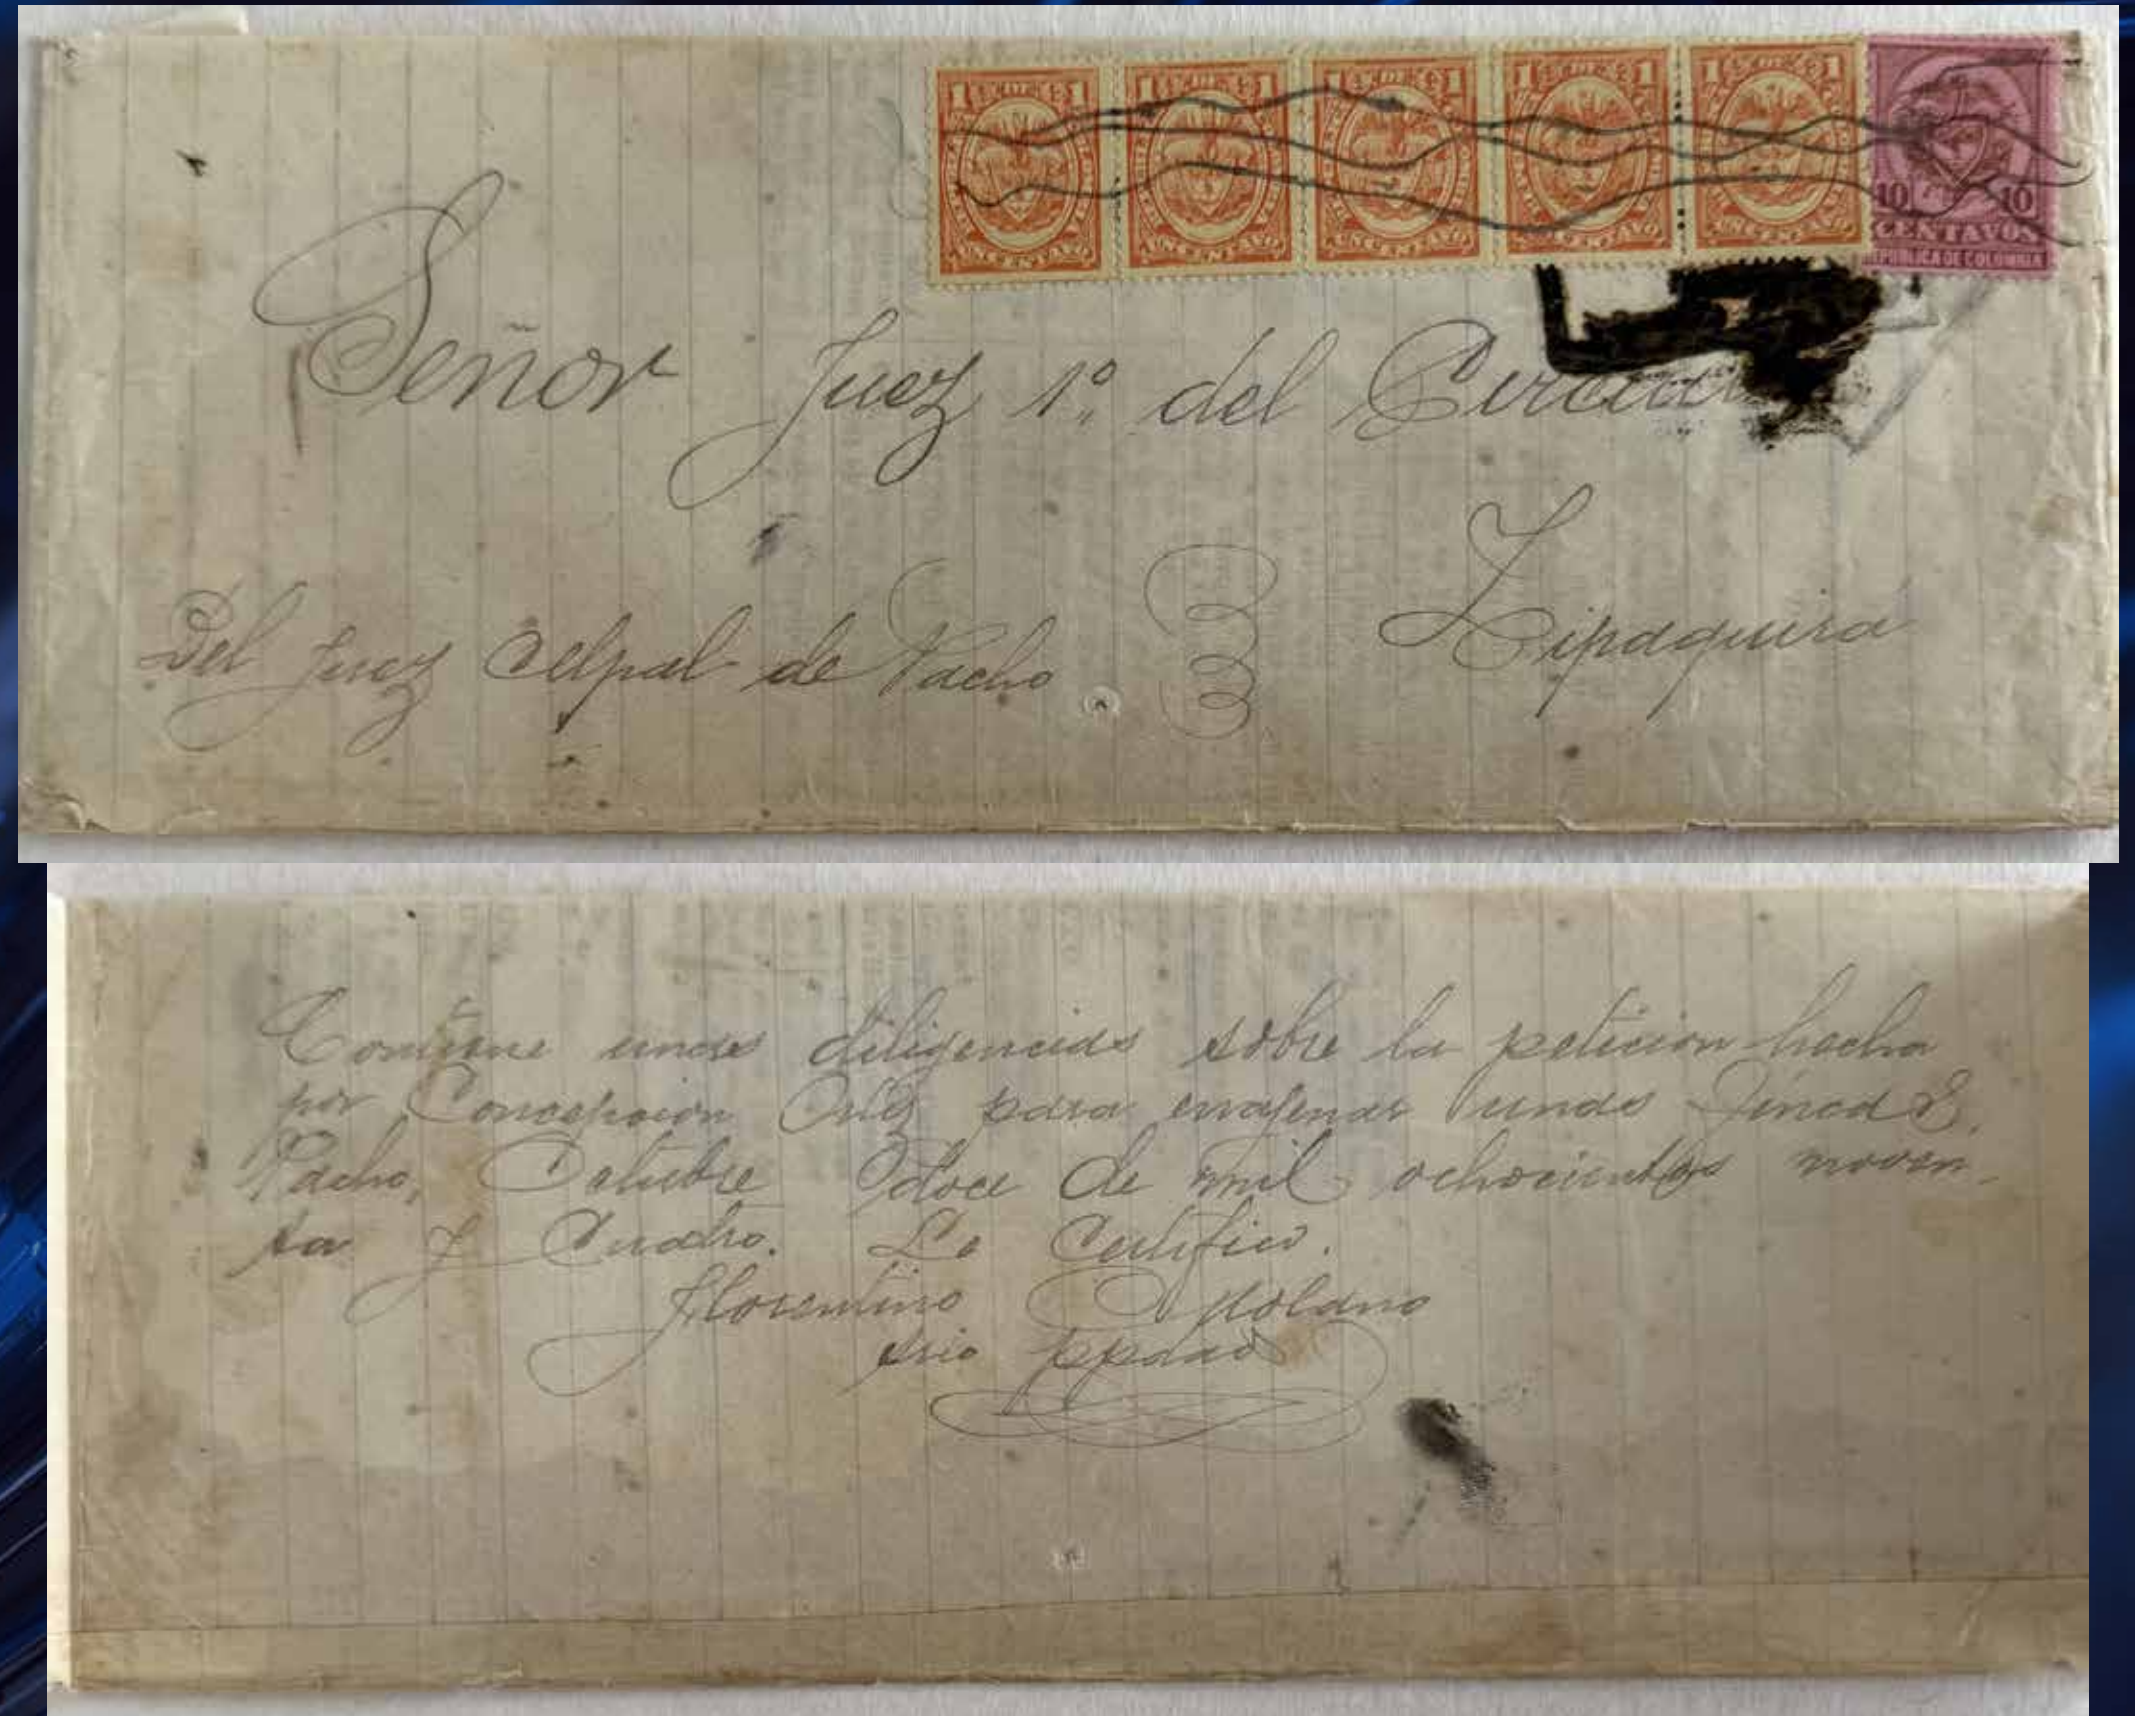 1 1
UN CENTAVO
1 1
UN CENTAVO
1 1
UN CENTAVO
1 1
UN CENTAVO
1 1
UN CENTAVO
10 10
CENTAVOS
REPUBLICA DE COLOMBIA
Señor Juez 1º del
Zipaquirá
Del Juez de Pacho
Contiene unas diligencias sobre la peticion hecha
por Concepcion para enajenar unas fincas.
Pacho, Octubre doce de mil ochocientos noven-
ta y Cuatro. Lo Certifico.
Florentino Moldano
srio ppdad